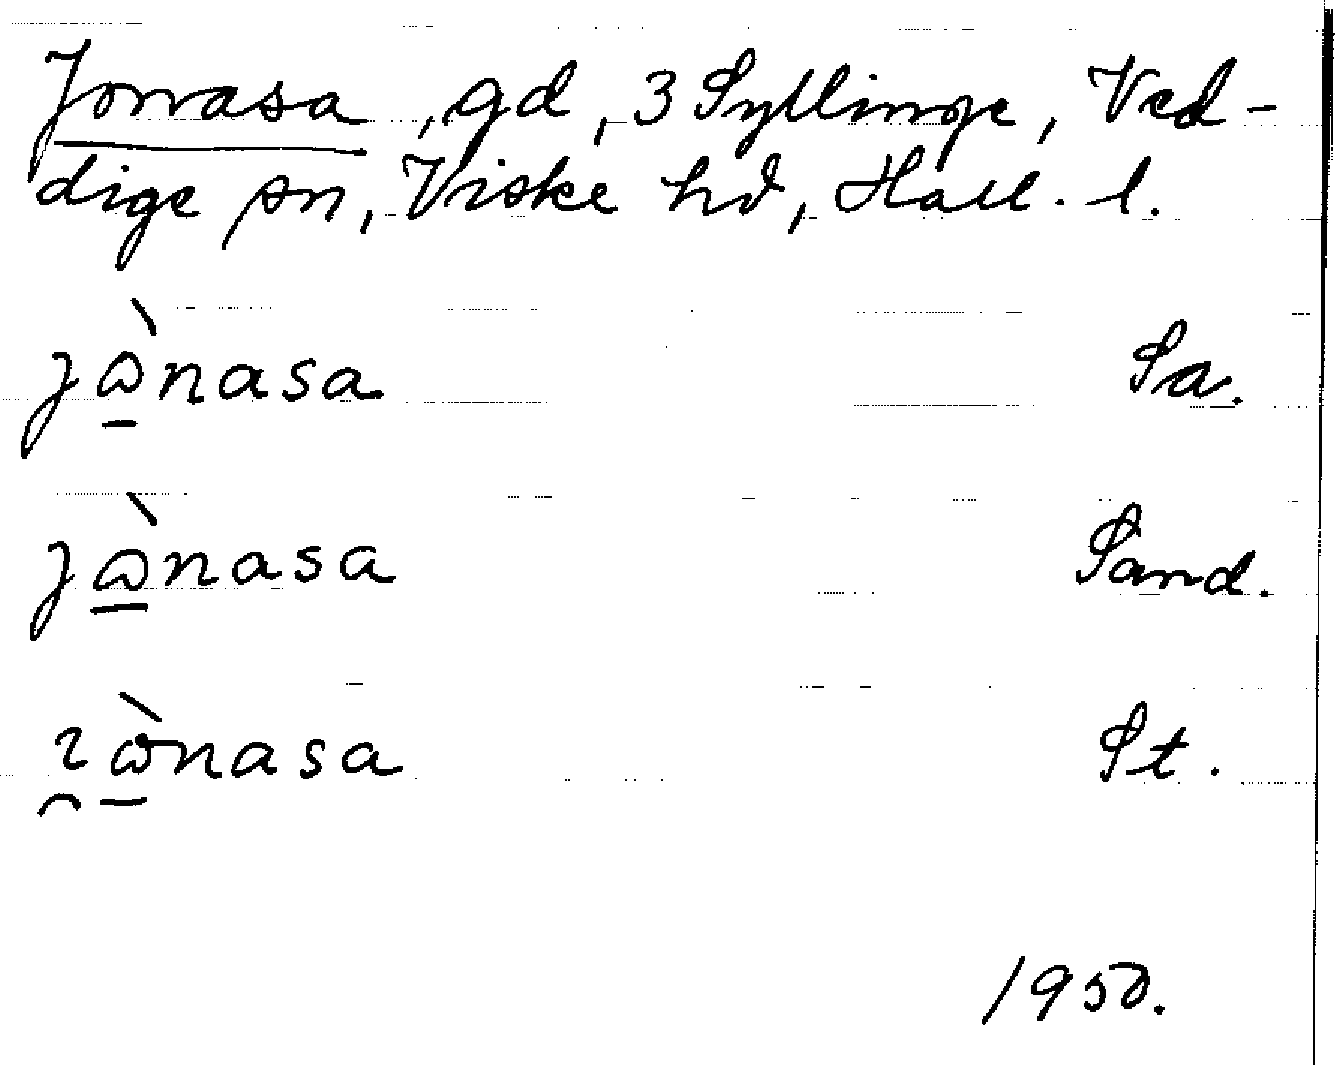 Jonnasa, gd, 3 Syllinge, Ved-
dige sn, Viske hd, Hall. l.
jὼnasa Sa.
jὼnasa Sand.
ɿὼnasa St.
1950.